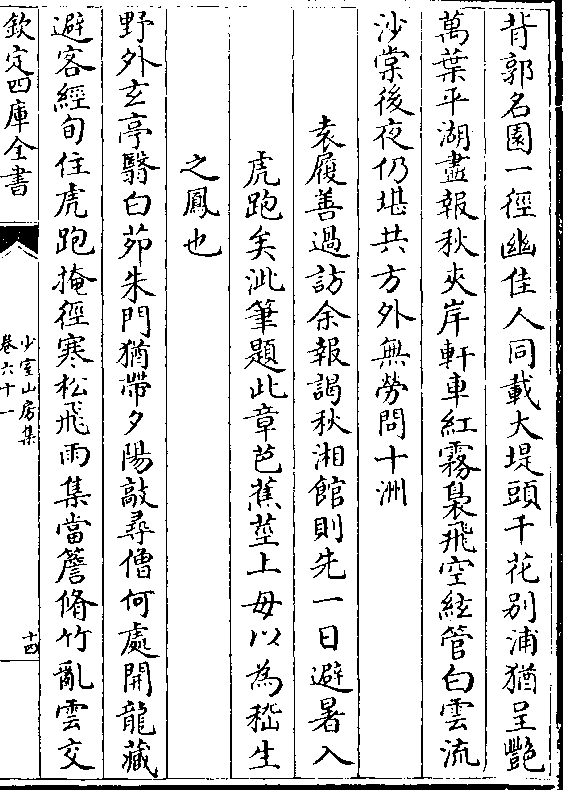 背郭名園一徑幽佳人同載大堤頭千花别浦猶呈艷
萬葉平湖盡報秋夾岸軒車紅霧裊飛空絃管白雲流
沙棠後夜仍堪共方外無勞問十洲
袁履善過訪余報謁秋湘館則先一日避暑入
虎跑矣泚筆題此章芭蕉莖上毋以為嵇生
之鳳也
野外玄亭翳白茆朱門猶帶夕陽敲尋僧何處開龍藏
避客經旬住虎跑掩徑寒松飛雨集當簷脩竹亂雲交
欽定四庫全書
少室山房集
卷六十一
十四